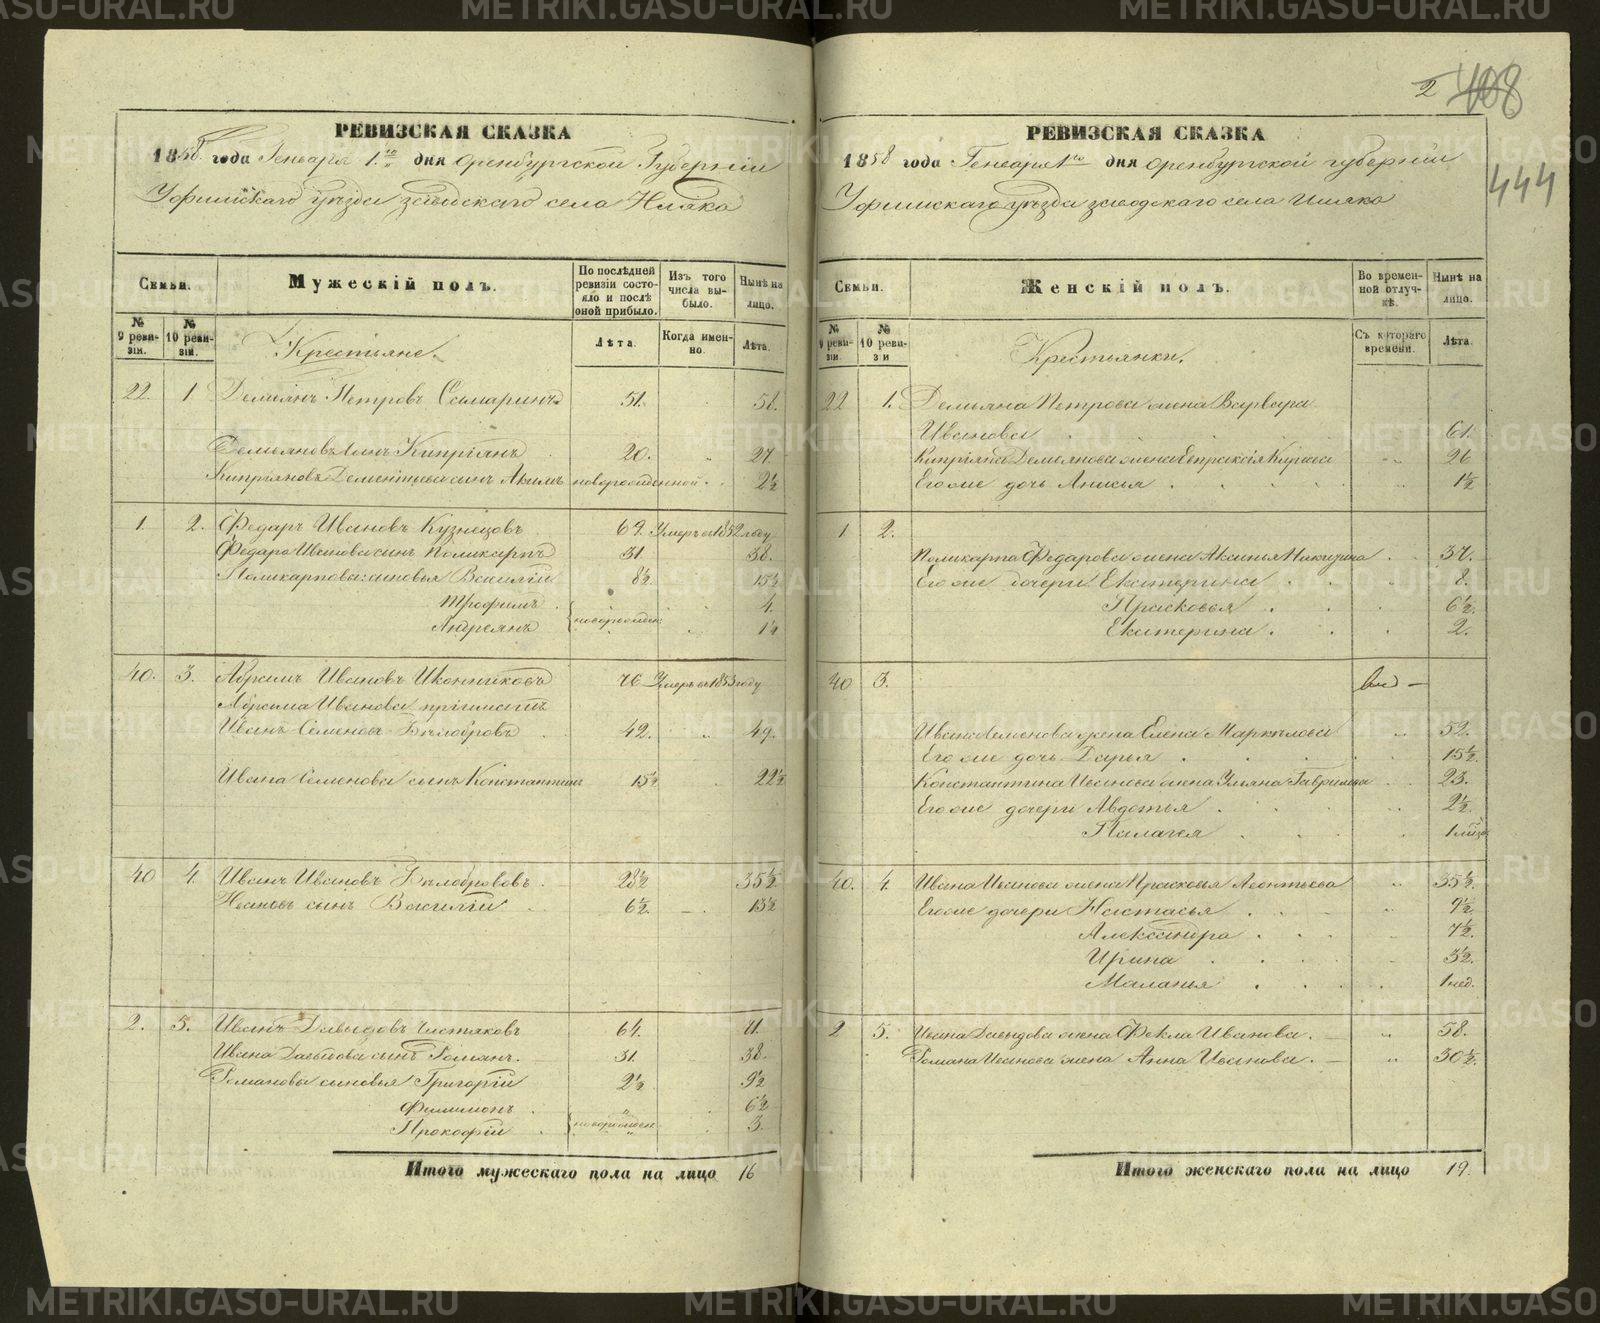 2 408
444
РЕВИЗСКАЯ СКАЗКА
1858 года Генваря 1го дня Оренбургской Губернiи
Уфимскаго уѣзда заводскаго села Иляка
Семьи.
Мужескiй полъ.
По послѣдней ревизiи состояло и послѣ оной прибыло.
Изъ того числа выбыло.
Нынѣ на лицо.
№ 9 ревизiи.
№ 10 ревизiи.
Лѣта.
Когда именно.
Лѣта.
Крестьяне.
22. 1 Демьянъ Петровъ Самаринъ 51. 58.
Демьяновъ сынъ Кипрiянъ 20. 27
Кипрiяновъ Дементьева сынъ Акимъ новорожденной 2½
1. 2. Федаръ Ивановъ Кузнецовъ 69. Умеръ въ 1852 году
Федара Иванова сынъ Поликарпъ 31. 38.
Поликарповы сыновья Василiй 8½. 15½
Трофимъ 4.
Андреянъ новорожден 1½
40. 3. Абрамъ Ивановъ Иконниковъ 76 Умеръ въ 1853 году
Абрама Иванова прiимышъ
Иванъ Семеновъ Бѣлобровъ 42. 49.
Ивана Семенова сынъ Константинъ 15½ 22½
40 4. Иванъ Ивановъ Бѣлобровъ 28½ 35½
Ивановъ сынъ Василiй 6½. 13½
2. 5. Иванъ Давыдовъ Чистяковъ 64. 71.
Ивана Давыдова сынъ Романъ. 31. 38.
Романовы сыновья Григорiй 2½ 9½
Филимонъ 6½
Прокофiй новорожден 3.
Итого мужескаго пола на лицо 16
РЕВИЗСКАЯ СКАЗКА
1858 года Генваря 1го дня Оренбургской губернiи
Уфимскаго уѣзда заводскаго села Иляка
Семьи.
Женскiй полъ.
Во временной отлучкѣ.
Нынѣ на лицо.
№ 9 ревизiи.
№ 10 ревизiи
Съ котораго времени.
Лѣта.
Крестьянки.
22 1. Демьяна Петрова жена Варвара
Иванова 61.
Кипрiяна Демьянова жена Евпраксiя Карпова 26
Его же дочь Анисья 1½
1 2.
Поликарпа Федарова жена Аксинья Никитина 37.
Его же дочери Екатерина 8.
Прасковья 6½.
Екатерина 2.
40 3.
Ивана Семенова жена Елена Маркелова 52.
Его же дочь Дарья 15½
Константина Иванова жена Ульяна Гаврилова 23.
Его же дочери Авдотья 2½
Палагея
40. 4. Ивана Иванова жена Прасковья Леонтьева 35½
Его же дочери Настасья 9½
Александра 7½.
Ирина 3½.
Маланья 1 нед.
2 5. Ивана Давыдова жена Фекла Иванова. 58.
Романа Иванова жена Анна Иванова. 30½.
Итого женскаго пола на лицо 19.
METRIKI.GASO-URAL.RU